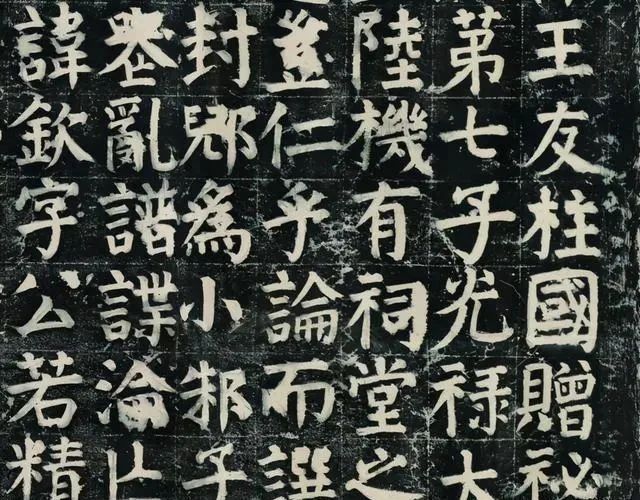 王友柱國贈祕
苐七子光禄大
陸機有祠堂之
豈仁乎論而譔
封郳爲小邾子
喪亂譜諜淪亡
諱欽字公若精